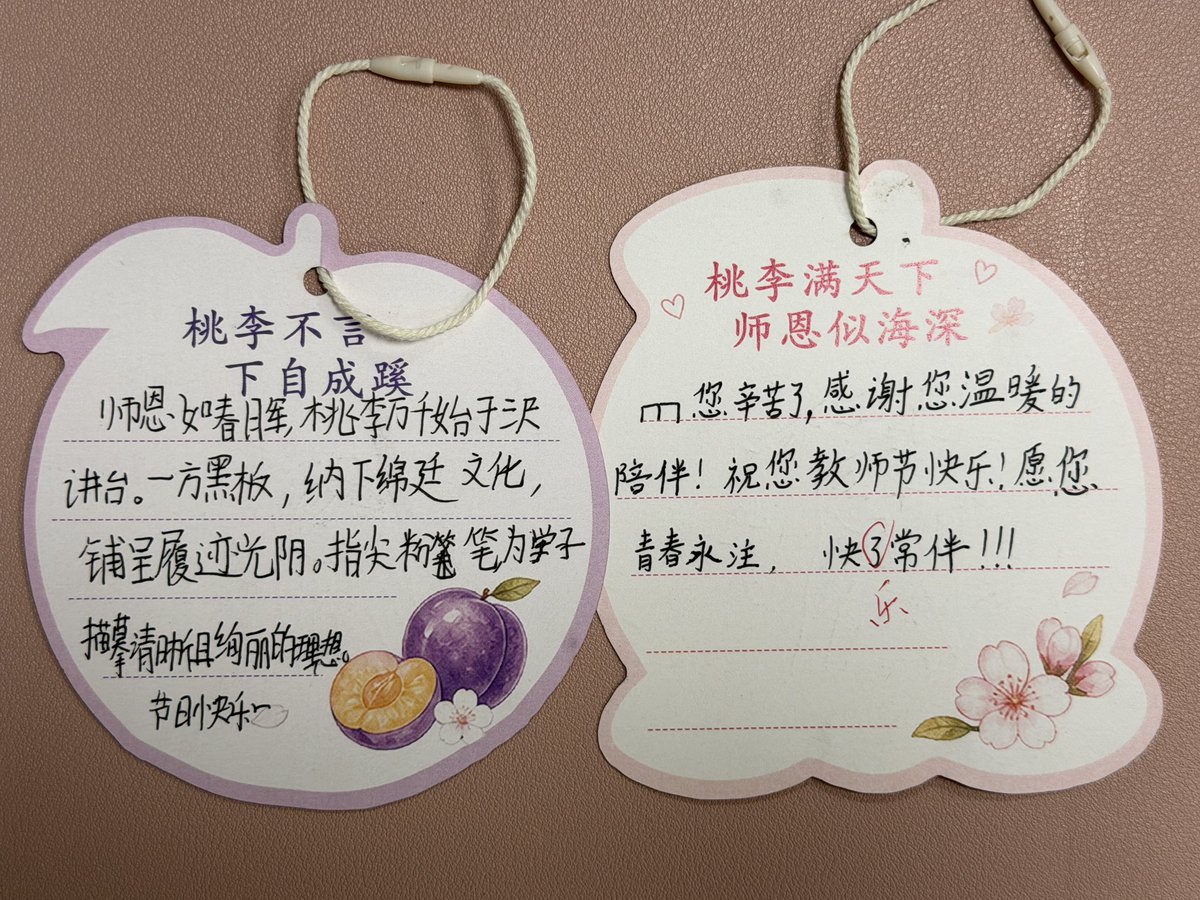 桃李不言
下自成蹊
师恩如春晖,桃李万千始于沢
讲台。一方黑板，纳下绵延文化，
铺呈履迹光阴。指尖粉笔笔,为学子
描摹清晰且绚丽的理想。
节日快乐~
桃李满天下
师恩似海深
您辛苦了,感谢您温暖的
陪伴！祝您教师节快乐！愿您
青春永注，快了常伴!!!
乐